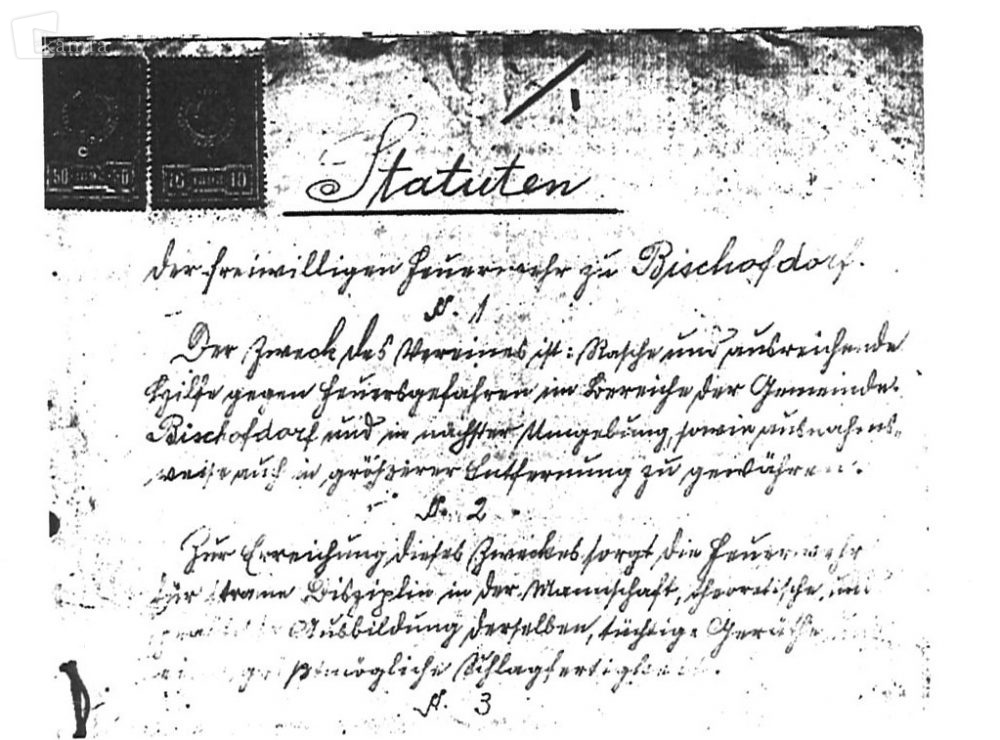 kamra
50 1898 50
10 1898 10
Statuten
der freiwilligen Feuerwehr zu Bischofdorf.
§. 1
Der Zweck des Vereines ist: Rasche und ausreichende
Hilfe gegen Feuersgefahren im Bereiche der Gemeinde
Bischofdorf und in nächster Umgebung, sowie ausnahms-
weise auch in größerer Entfernung zu gewähren.
§. 2
Zur Erreichung dieses Zweckes sorgt die Feuerwehr
für Disziplin in der Mannschaft, theoretische und
Ausbildung derselben, tüchtige Geräthe
größtmögliche Schlagfertigkeit.
§. 3